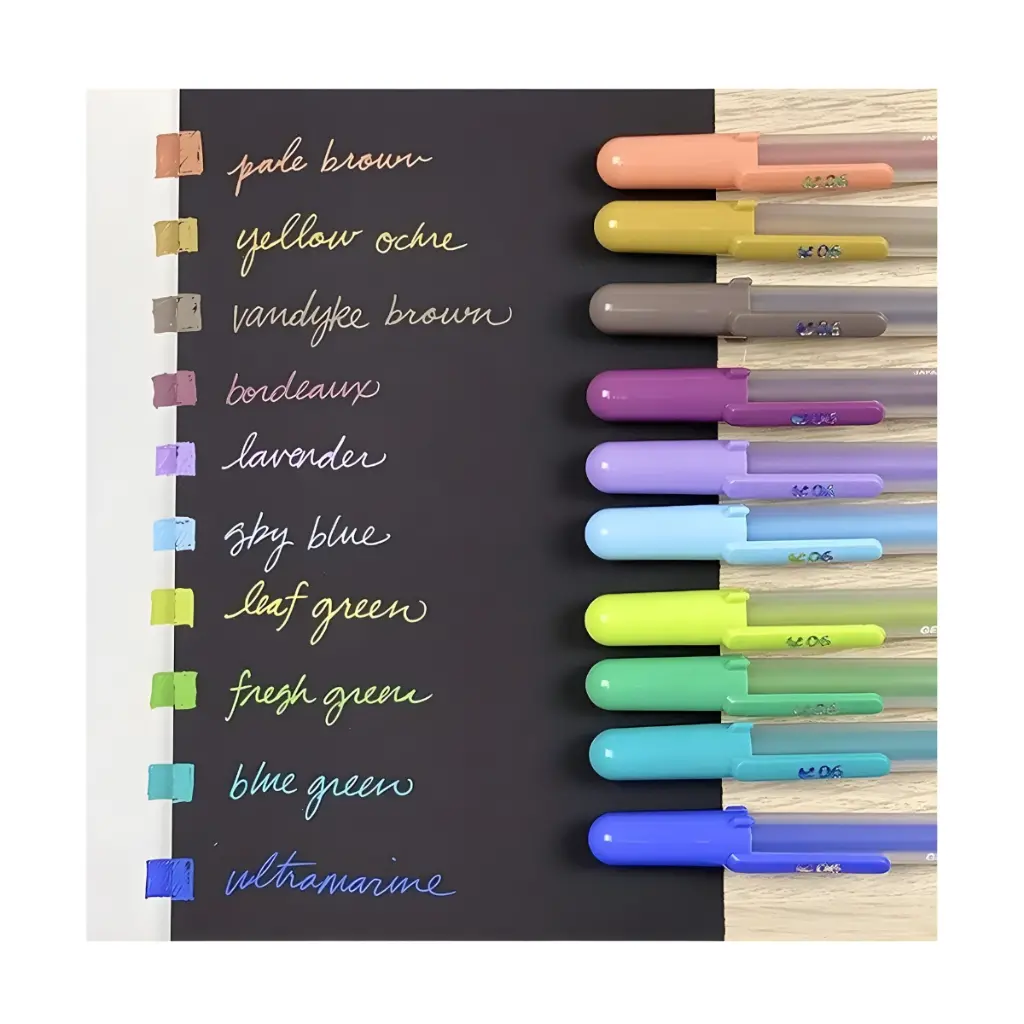 pale brown
06
yellow ochre
06
vandyke brown
06
bordeaux
lavender
06
sky blue
06
leaf green
06
fresh green
blue green
06
ultramarine